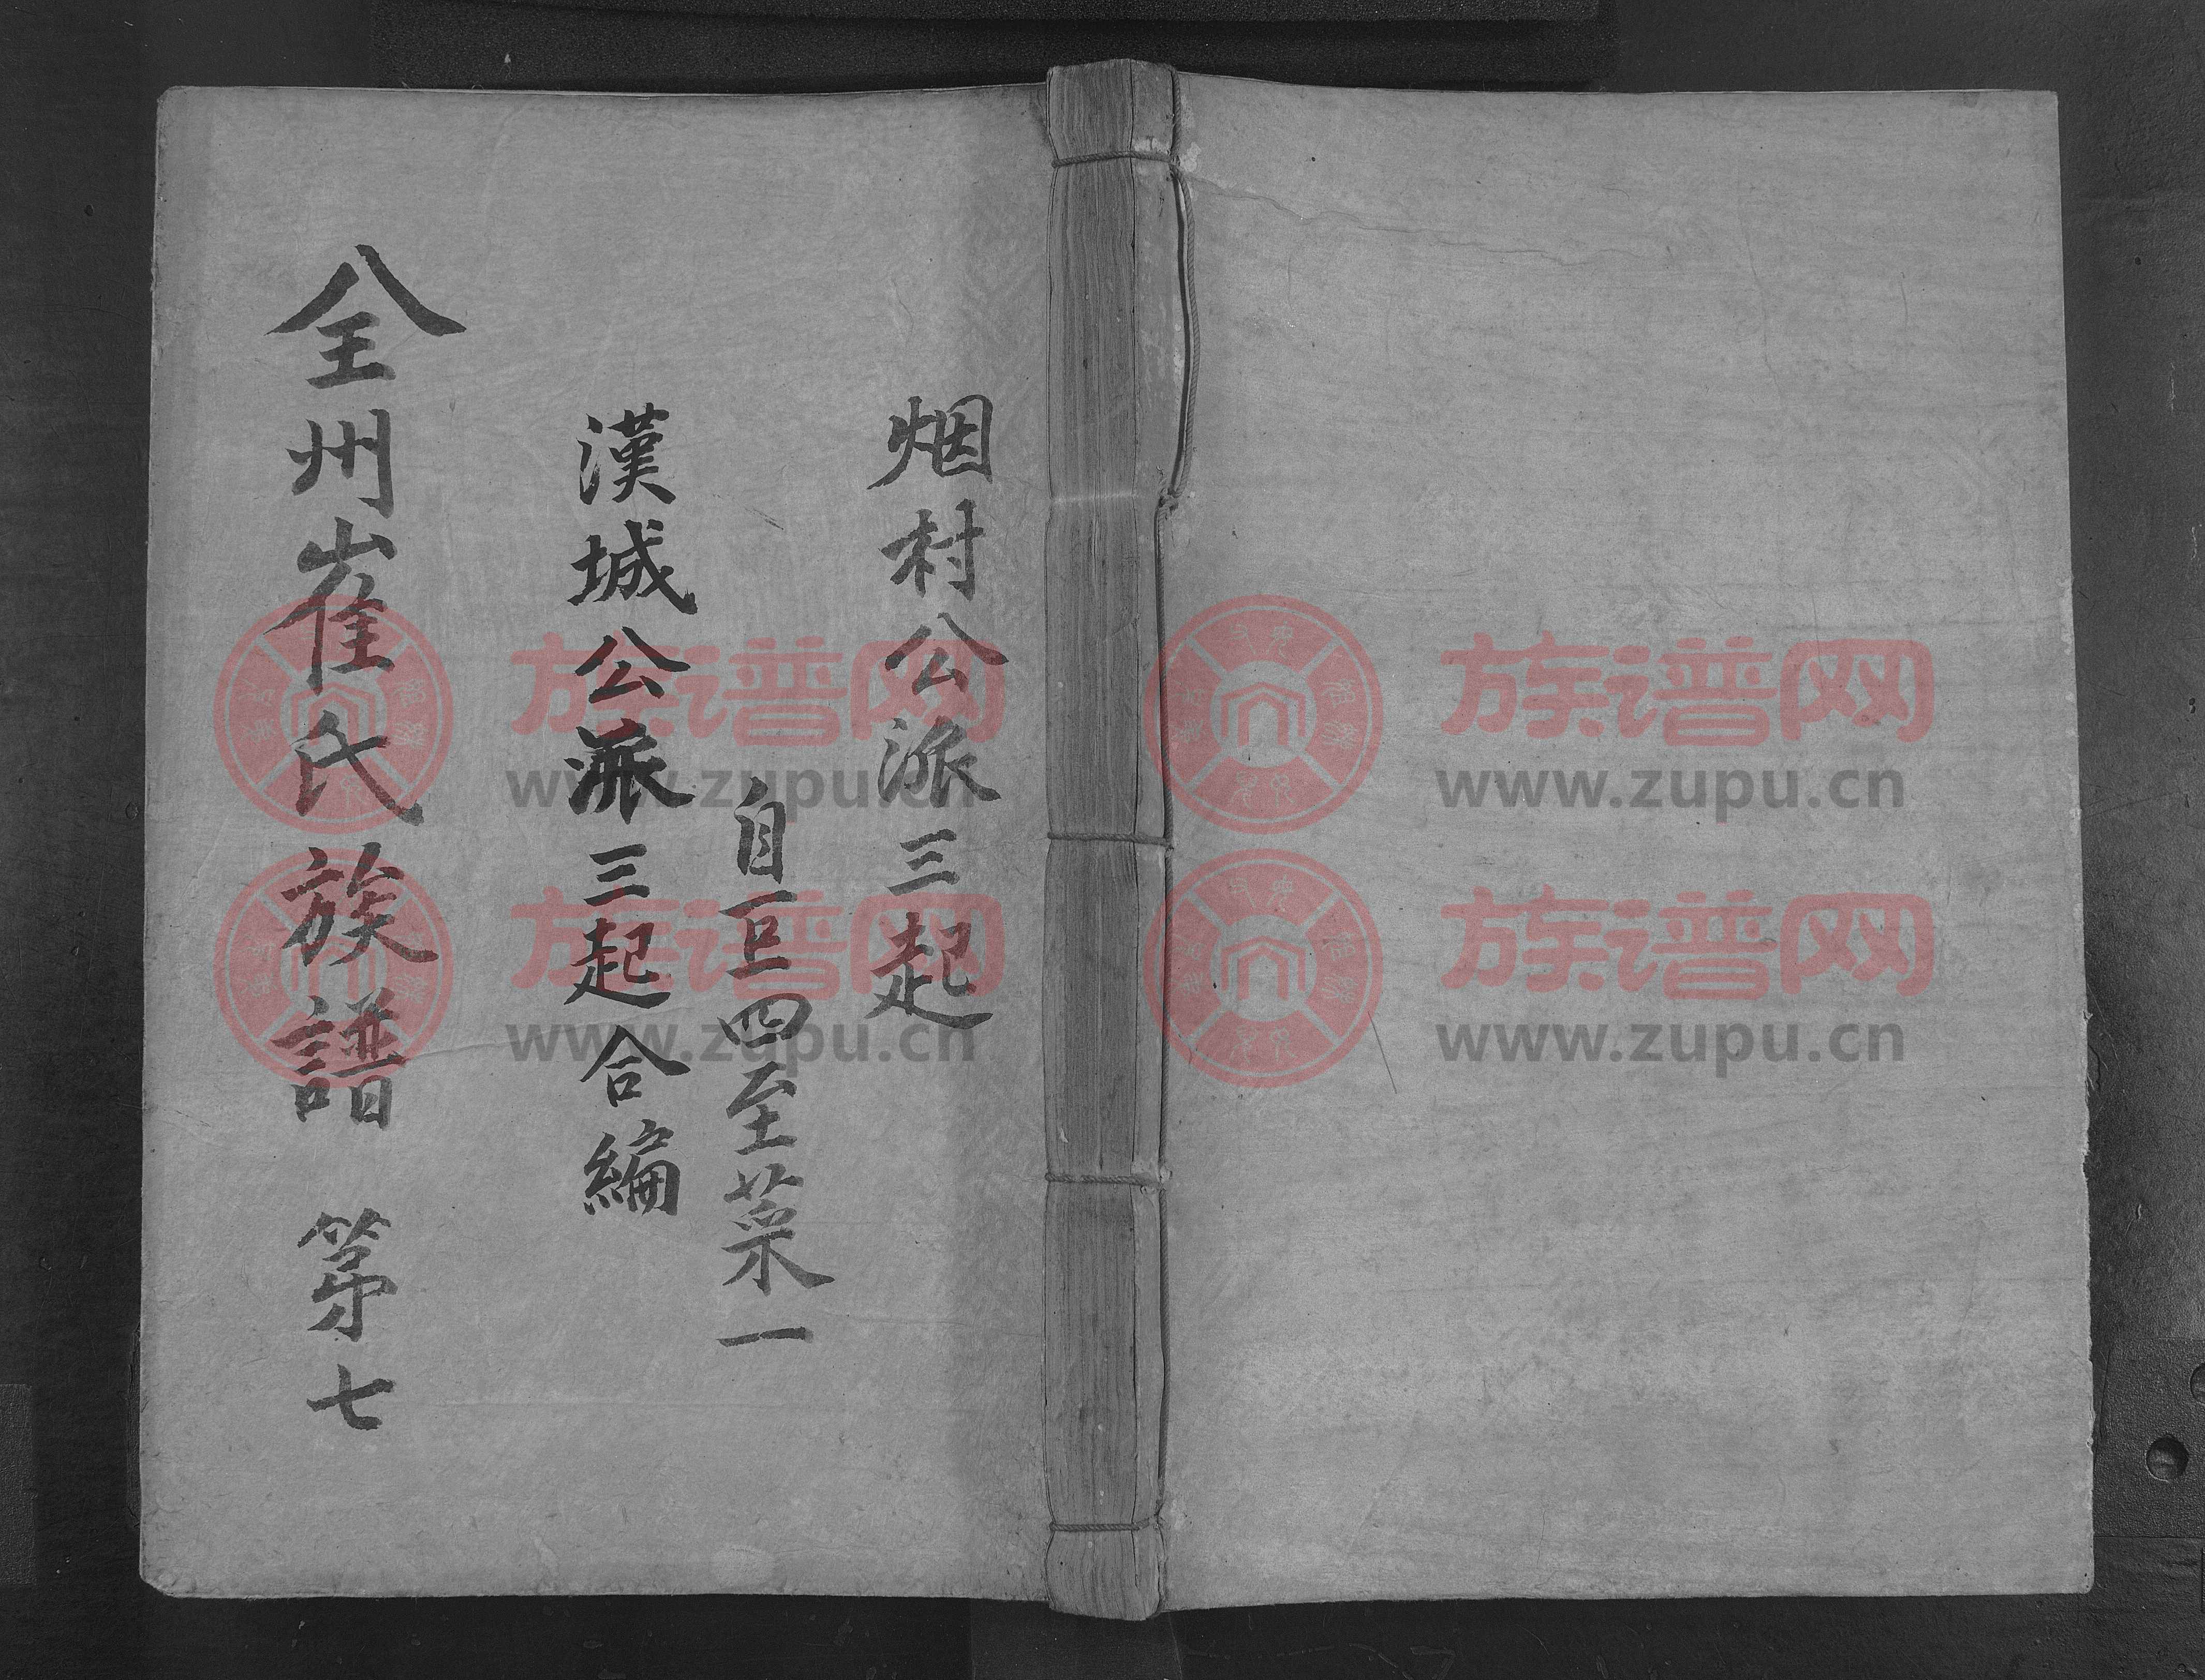 烟村公派三起
自巨四至菜一
漢城公派三起合編
全州崔氏族譜 第七
族谱网
www.zupu.cn
族谱网
www.zupu.cn
族谱网
www.zupu.cn
族谱网
www.zupu.cn